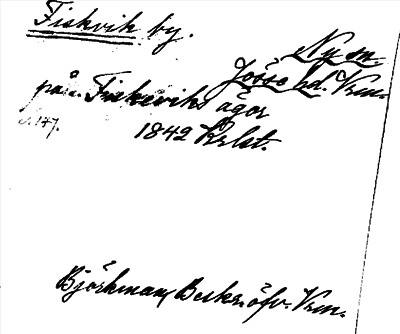 Fiskvik by.
Ny sn
Jösse hd. Vrm.
på Fiskeviks ägor
s. 147.
1842 Krlst.
Björkman, Beskr. öfv. Vrm.